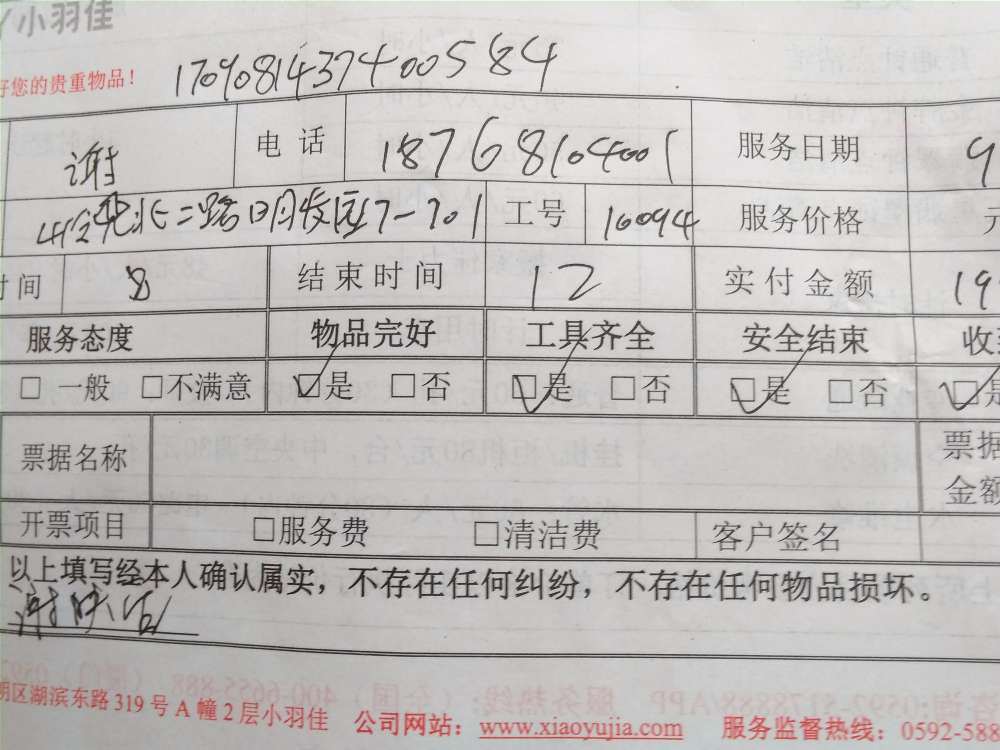 小羽佳
好您的贵重物品！ 1709081437400584
谢 电话 18768104001 服务日期 9
北二路明发园17-701 工号 16094 服务价格 元
时间 8 结束时间 12 实付金额 19
服务态度 物品完好 工具齐全 安全结束 收
□一般 □不满意 ☑是 □否 ☑是 □否 ☑是 □否 ☑是
票据名称 票据金额
开票项目 □服务费 □清洁费 客户签名
以上填写经本人确认属实，不存在任何纠纷，不存在任何物品损坏。
谢
明区湖滨东路319号A幢2层小羽佳 公司网站：www.xiaoyujia.com 服务监督热线：0592-588